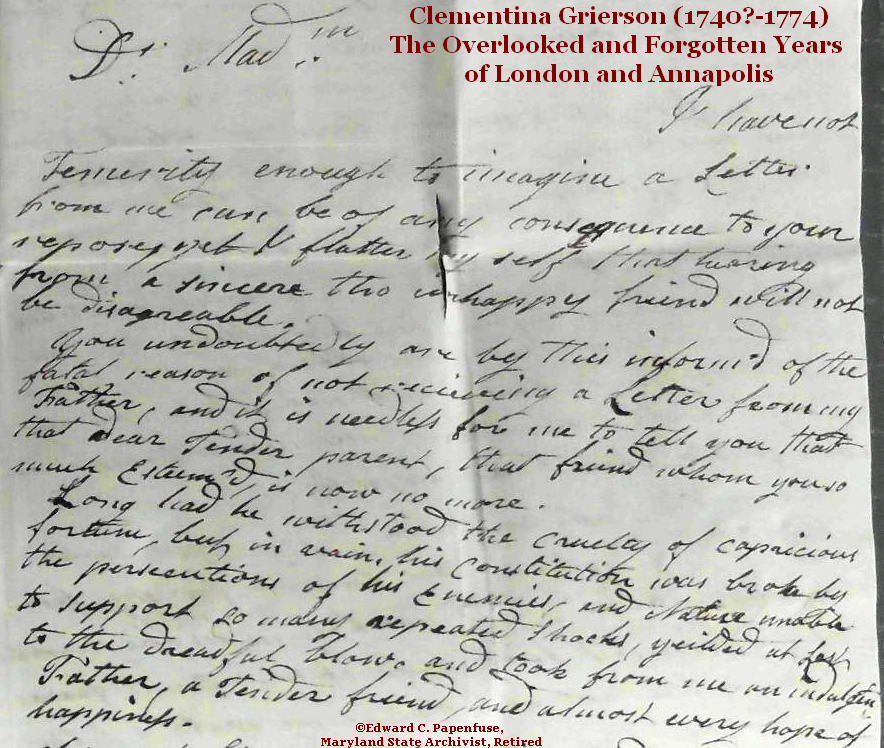 Clementina Grierson (1740?-1774)
The Overlooked and Forgotten Years
of London and Annapolis
Dr. Madm
I have not
Temerity enough to imagine a Letter
from me can be of any consequence to your
repose, yet I flatter my self that hearing
from a sincere tho unhappy friend will not
be disagreable.
You undoubtedly are by this inform'd of the
fatal reason of not recieving a Letter from my
Father, and it is needless for me to tell you that
that dear Tender parent, that friend whom you so
much Esteem'd, is now no more.
Long had he withstood the cruelty of capricious
fortune, but in vain, his Constitution was broke by
the persecutions of his Enemies, and Nature unable
to support so many repeated Shocks, yeilded at last
to the dreadful blow. and took from me an indulgen
Father, a Tender friend, and almost every hope of
happiness.
©Edward C. Papenfuse,
Maryland State Archivist, Retired